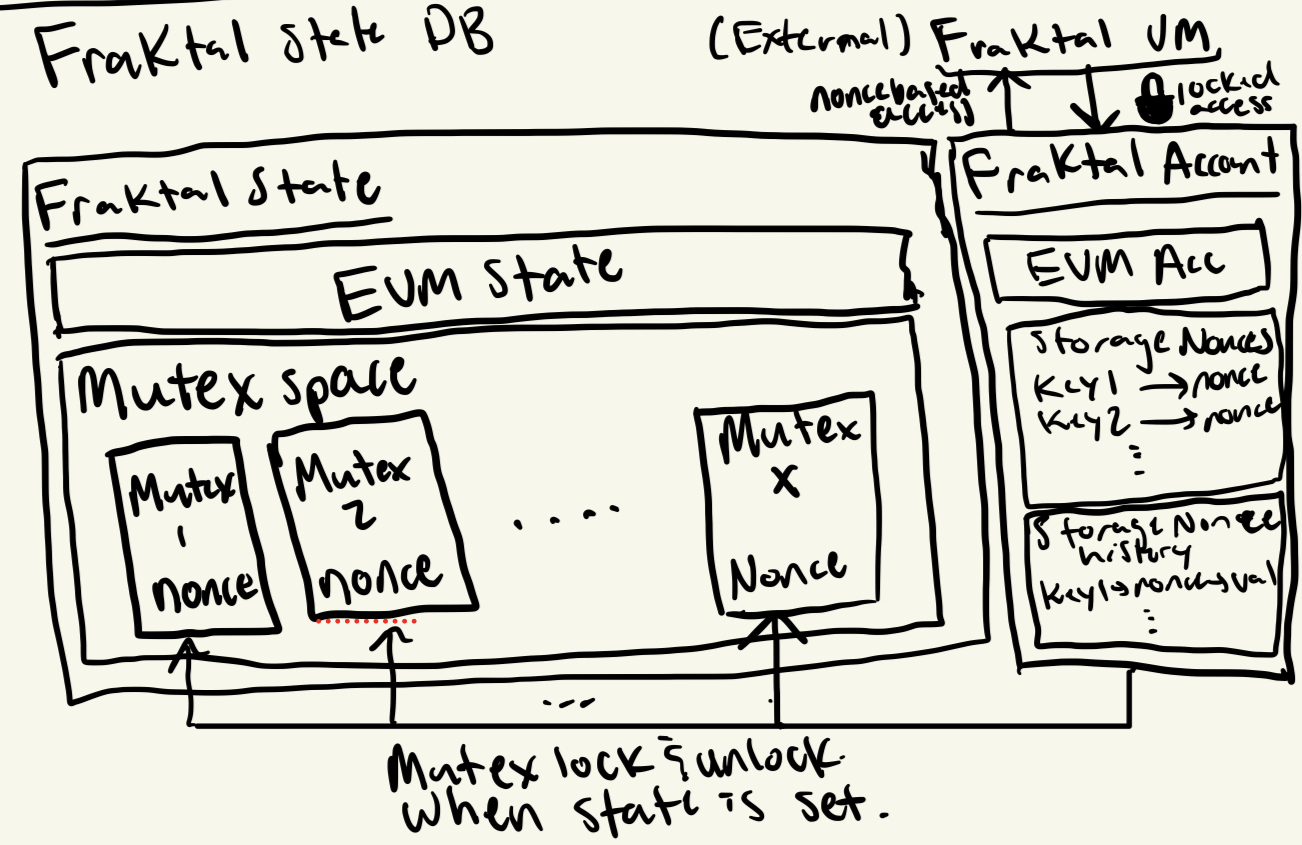 Fraktal State DB
(External) Fraktal VM
nonce based
access
locked
access
Fraktal State
EVM State
Mutex space
Mutex
1
nonce
Mutex
2
nonce
. . . .
Mutex
X
Nonce
Fraktal Account
EVM Acc
Storage Nonces
Key1 → nonce
Key2 → nonce
⋮
Storage Nonce
history
Key1→nonce→val
⋮
...
Mutex lock & unlock
when state is set.